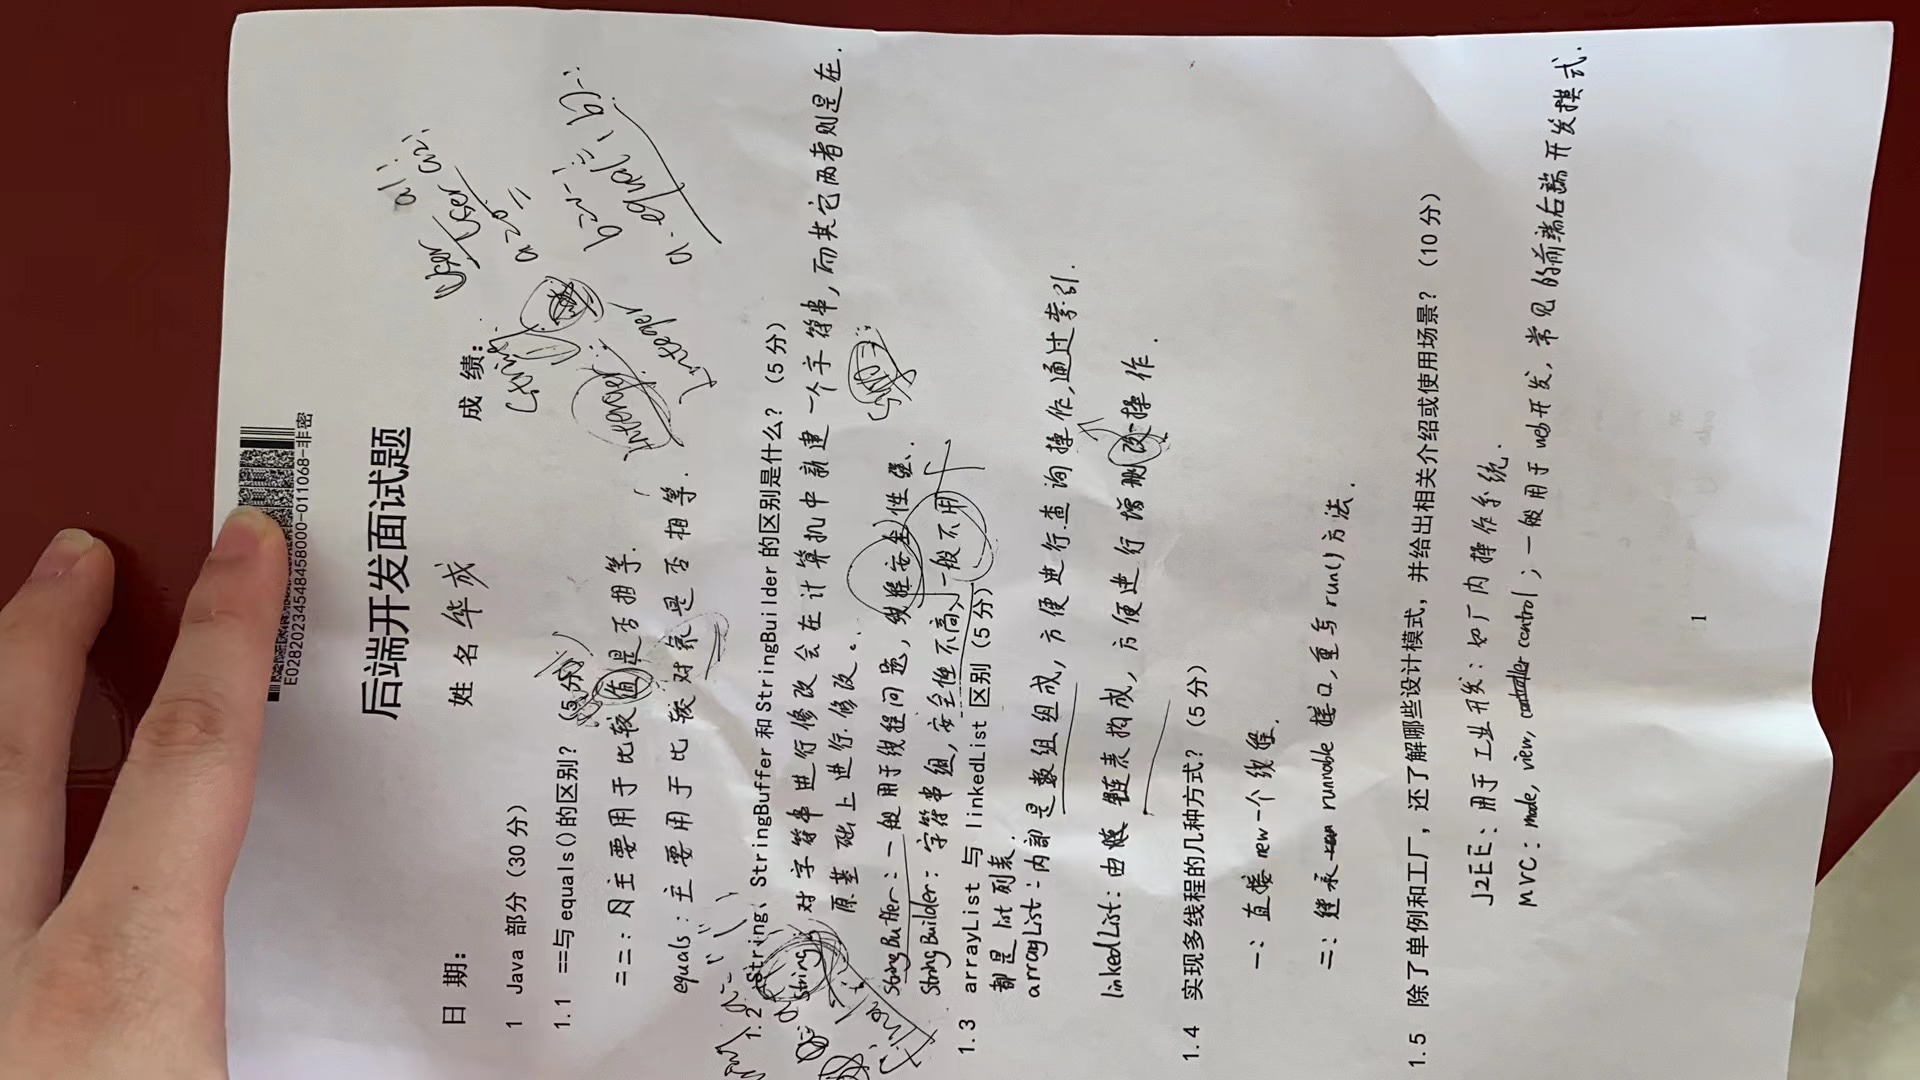 E02820234548458000-011068-非密
后端开发面试题
日 期： 姓 名 华成 成 绩：
1 Java 部分（30 分）
1.1 ==与 equals()的区别？（5 分）
==：主要用于比较值是否相等.
equals：主要用于比较对象是否相等.
1.2 String、StringBuffer 和 StringBuilder 的区别是什么？（5 分）
String：对字符串进行修改会在计算机中新建一个字符串，而其它两者则是在
原基础上进行修改。
StringBuffer：一般用于线程问题，线程安全性强、
StringBuilder：字符串组，安全性不高，一般不用
1.3 arrayList 与 linkedList 区别（5 分）
都是list列表
arrayList：内部是数组组成，方便进行查询操作，通过索引.
linkedList：由链表构成，方便进行增删改操作.
1.4 实现多线程的几种方式？（5 分）
一：直接new一个线程.
二：继承 runnable 接口，重写run()方法.
1.5 除了单例和工厂，还了解哪些设计模式，并给出相关介绍或使用场景？（10 分）
J2EE：用于工业开发：如厂内操作系统.
MVC：mode, view, control；一般用于web开发，常见的前端后端开发模式.
1
User a1
User a2
String
Integer
Integer
final